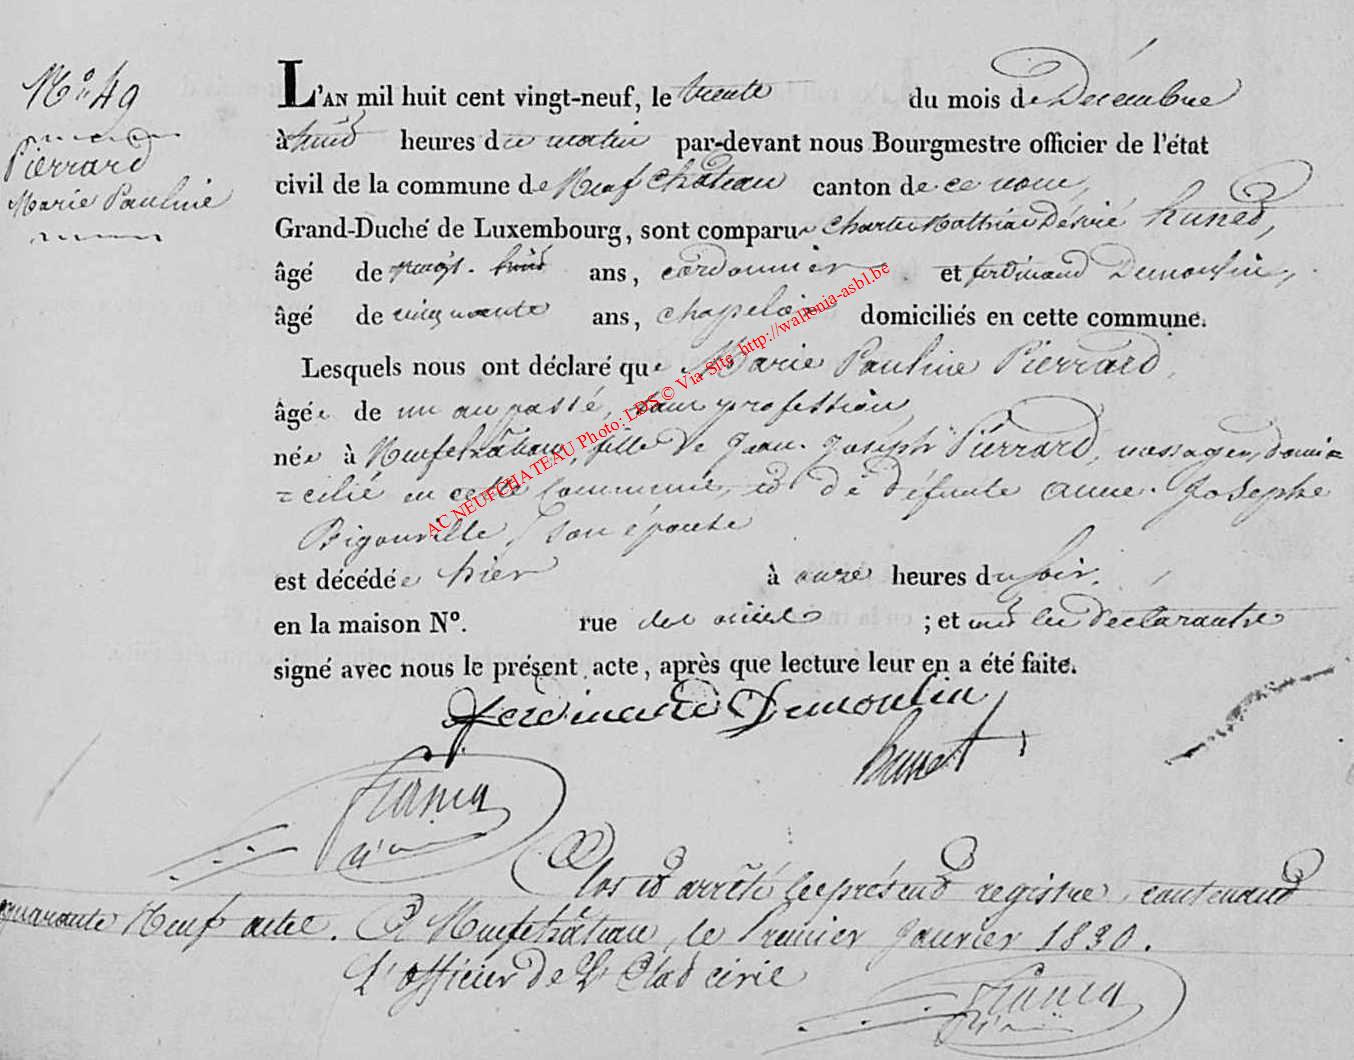 N° 49
Pierrard
Marie Pauline
L'AN mil huit cent vingt-neuf, le trente du mois de Décembre
à huit heures du matin par-devant nous Bourgmestre officier de l'état
civil de la commune de Neufchâteau canton de ce nom,
Grand-Duché de Luxembourg, sont comparu Désiré hunet,
âgé de vingt-huit ans, cordonnier et ferdinand Demoulin,
âgé de cinquante ans, chapelier domiciliés en cette commune.
Lesquels nous ont déclaré que Marie Pauline Pierrard,
âgée de un an passé, sans profession,
née à Neufchâteau, fille de Jean-Joseph Pierrard, messager, domi=
=cilié en cette commune, et de défunte anne-Josephe
Bigonville, son épouse
est décédée hier à onze heures du soir.
en la maison N°. rue ; et ont les déclarants
signé avec nous le présent acte, après que lecture leur en a été faite.
ferdinand Demoulin
hunet
Clos et arrêté le présent registre, contenant
quarante Neuf actes. A Neufchâteau, le Premier Janvier 1830.
L'officier de L'Etat civil
AC NEUFCHATEAU Photo: LDS © Via Site http://wallonia-asbl.be